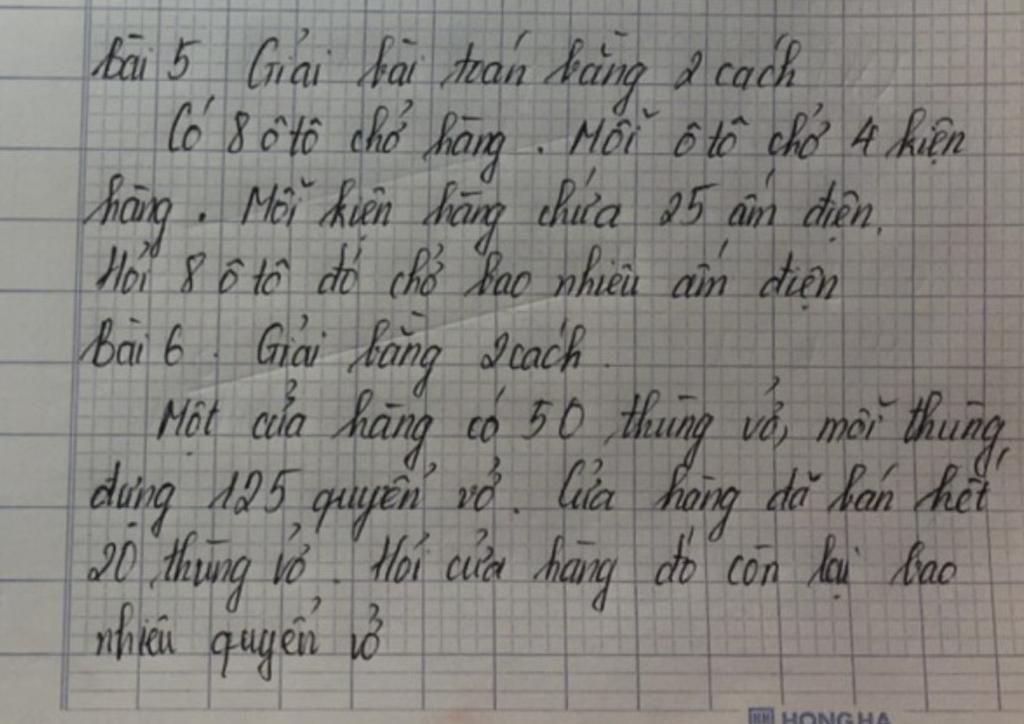 Bài 5 Giải bài toán bằng 2 cách
Có 8 ô tô chở hàng. Mỗi ô tô chở 4 kiện
hàng. Mỗi kiện hàng chứa 25 ấm điện.
Hỏi 8 ô tô đó chở bao nhiêu ấm điện
Bài 6. Giải bằng 2 cách.
Một cửa hàng có 50 thùng vở, mỗi thùng
đựng 125 quyển vở. Cửa hàng đã bán hết
20 thùng vở. Hỏi cửa hàng đó còn lại bao
nhiêu quyển vở
HH HONGHA